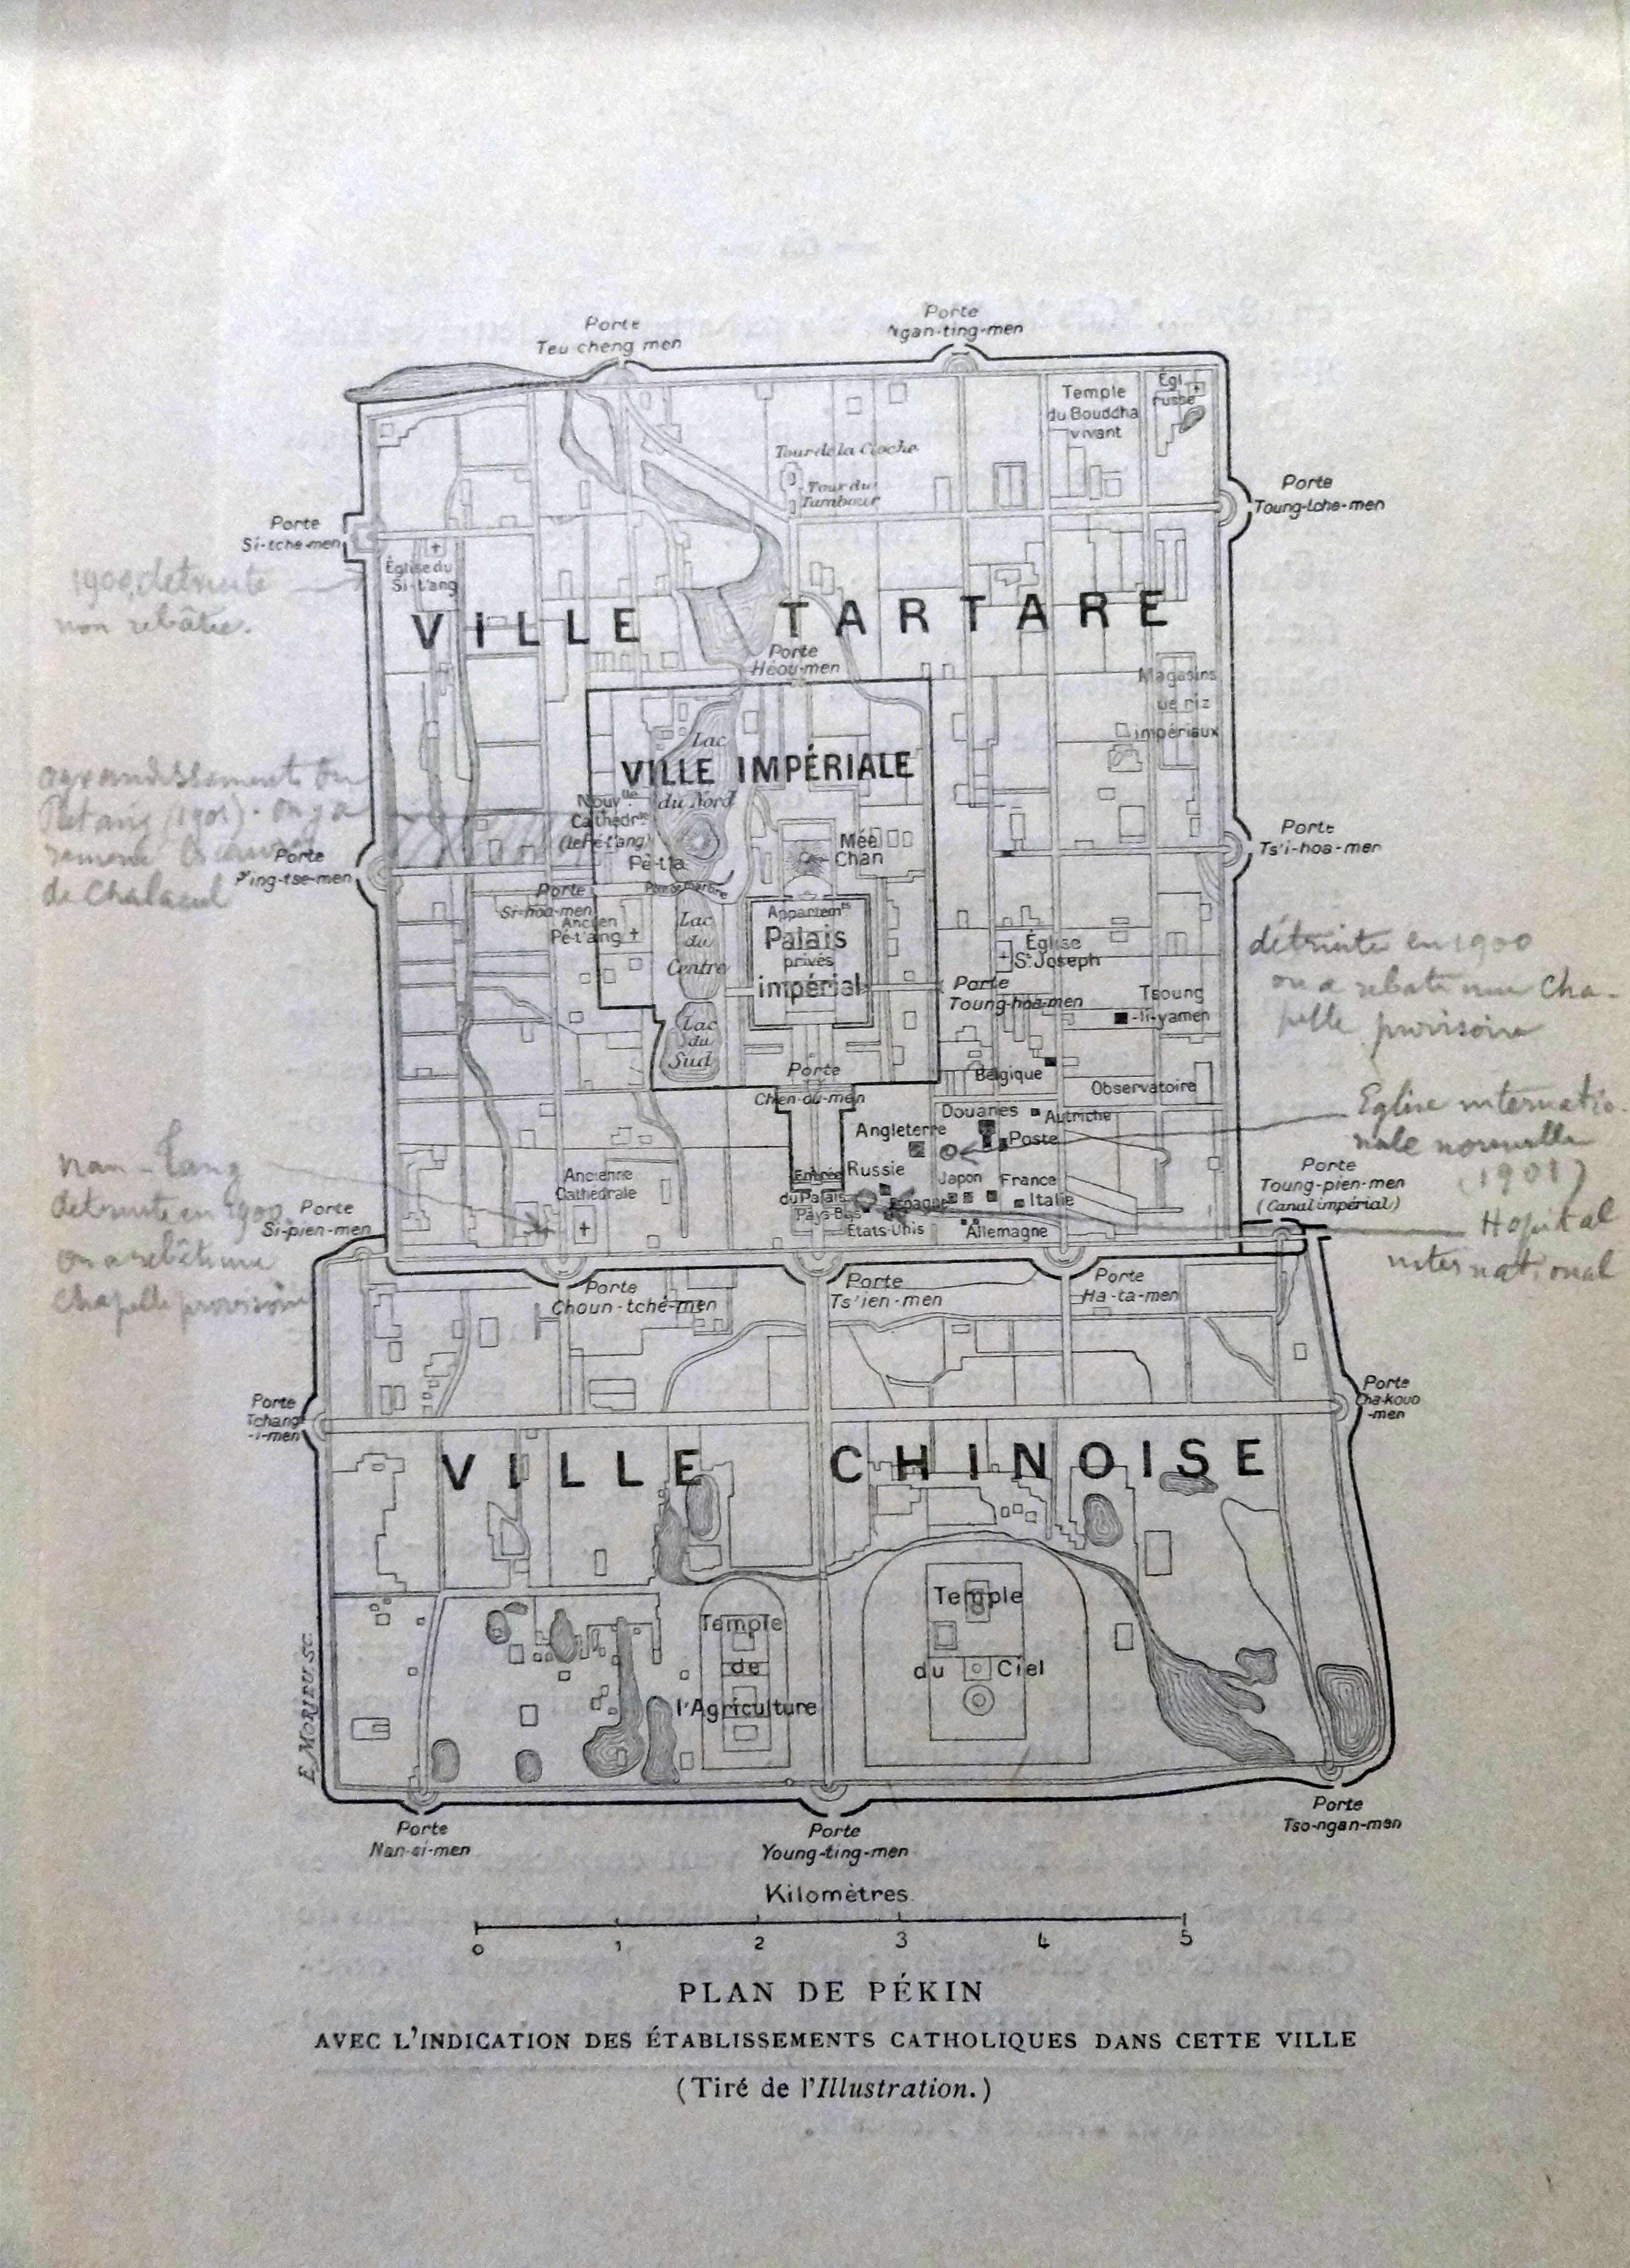 Porte
Teu cheng men
Porte
Ngan-ting-men
Temple
du Bouddha
vivant
Égl
russe
Tour de la Cloche
Tour du
Tambour
Porte
Toung-tche-men
Porte
Si-tche-men
Église du
Si-t'ang
1900, détruite
non rebâtie.
VILLE TARTARE
Porte
Héou-men
Magasins
de riz
impériaux
Lac
VILLE IMPÉRIALE
du Nord
Nouvlle
Cathédrle
(le Pé-t'ang)
Pé-t'a
agrandissement du
Petang (1901). on y a
de Chalaeul
Mée
Chan
Porte
Ts'i-hoa-men
Porte
P'ing-tse-men
Porte
Si-hoa-men
Pont de Marbre
Ancien
Pé-t'ang
Lac
du
Centre
Appartemts
Palais
privés
impérial
Église
St Joseph
détruite en 1900
on a rebati une Cha-
pelle provisoire
Porte
Toung-hoa-men
Tsoung
-li-yamen
Lac
du
Sud
Porte
Chen-ou-men
Belgique
Observatoire
Douanes
Autriche
Angleterre
Poste
Eglise internatio-
nale nouvelle
(1901)
Russie
Japon
France
Entrée
du Palais
Pays-Bas
Espagne
Italie
États-Unis
Allemagne
Ancienne
Cathédrale
Nan-Tang
détruite en 1900
on a rebâti une
chapelle provisoire
Porte
Si-pien-men
Porte
Toung-pien-men
(Canal impérial)
Hopital
international
Porte
Choun-tché-men
Porte
Ts'ien-men
Porte
Ha-ta-men
Porte
Tchang
-i-men
Porte
Cha-kouo
-men
VILLE CHINOISE
Temple
de
l'Agriculture
Temple
du Ciel
E. MORIEU. SC.
Porte
Nan-si-men
Porte
Young-ting-men
Porte
Tso-ngan-men
Kilomètres
0 1 2 3 4 5
PLAN DE PÉKIN
AVEC L'INDICATION DES ÉTABLISSEMENTS CATHOLIQUES DANS CETTE VILLE
(Tiré de l'Illustration.)